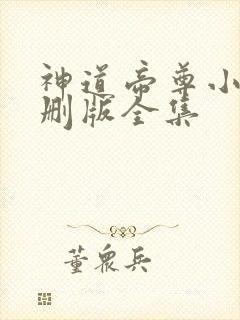 神道帝尊小
删版全集
董众兵